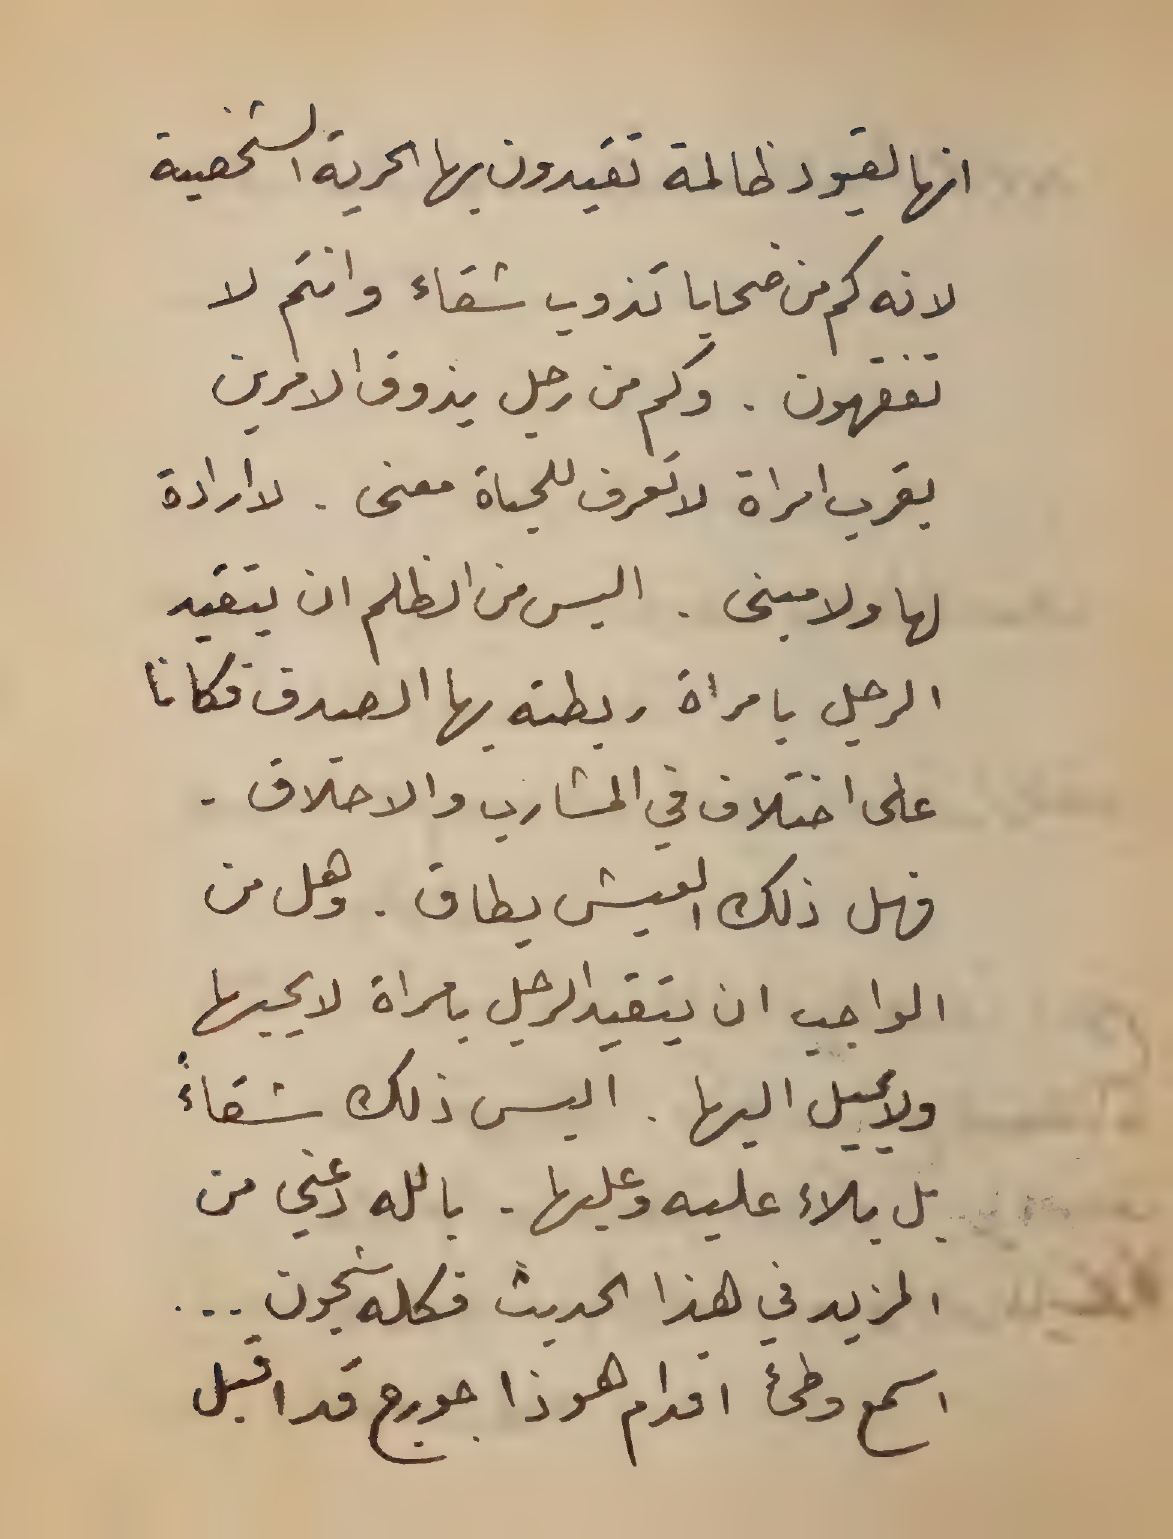 انها لقيود ظالمة تقيدون بها الحرية الشخصية
لانه كم من ضحايا تذوب شقاء وانتم لا
تفقهون . وكم من رجل يذوق الامرين
بقرب امراة لا تعرف للحياة معنى . لا ارادة
لها ولا مبنى . اليس من الظلم ان يتقيد
الرجل بامراة ربطته بها الصدف فكانا
على اختلاف في المشارب والاخلاق .
فهل ذلك العيش يطاق . وهل من
الواجب ان يتقيد الرجل بامراة لا يحبها
ولا يميل اليها . اليس ذلك شقاءً
بل بلاء عليه وعليها . بالله دعني من
المزيد في هذا الحديث فكله شجون ...
اسمع وطئ اقدام هوذا جورج قد اقبل